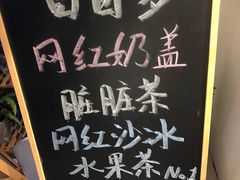 网红奶盖
脏脏茶
网红沙冰
水果茶 No.1